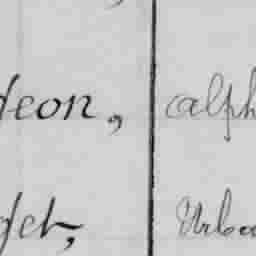 deon, alph
get, Urba